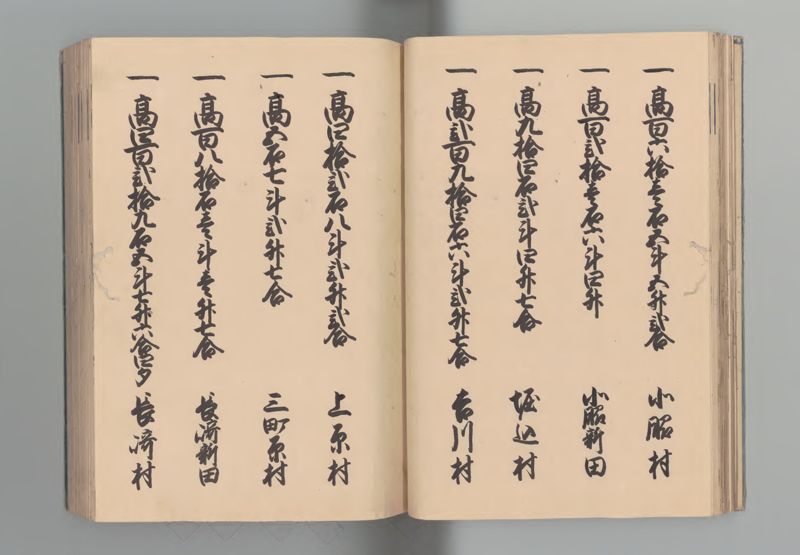 一 高百六拾壱石五斗五升弐合 小脇村
一 高百弐拾壱石六斗四升 小脇新田
一 高九拾四石弐斗四升七合 堀込村
一 高弐百九拾四石六斗弐升七合 吉川村
一 高四拾弐石八斗弐升弐合 上原村
一 高五石七斗弐升七合 三町原村
一 高百八拾石壱斗壱升七合 長崎新田
一 高四百弐拾九石五斗七升六合四夕 長崎村